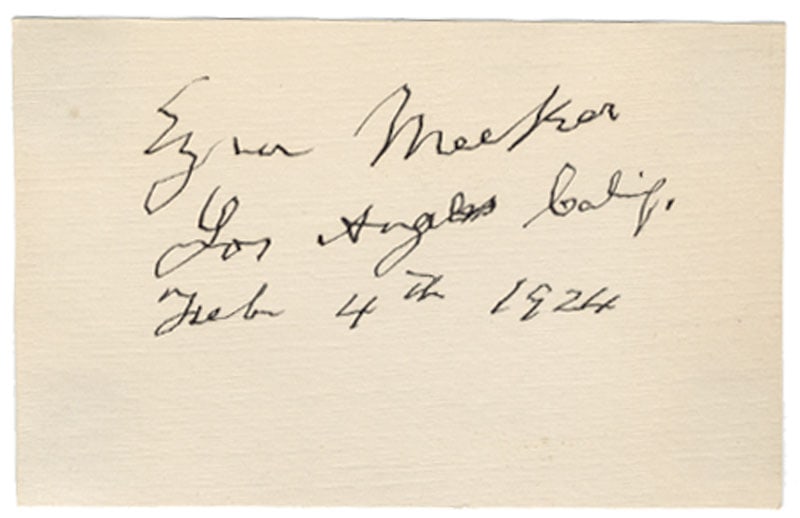 Ezra Meeker
Los Angeles Calif.
Feb 4th 1924